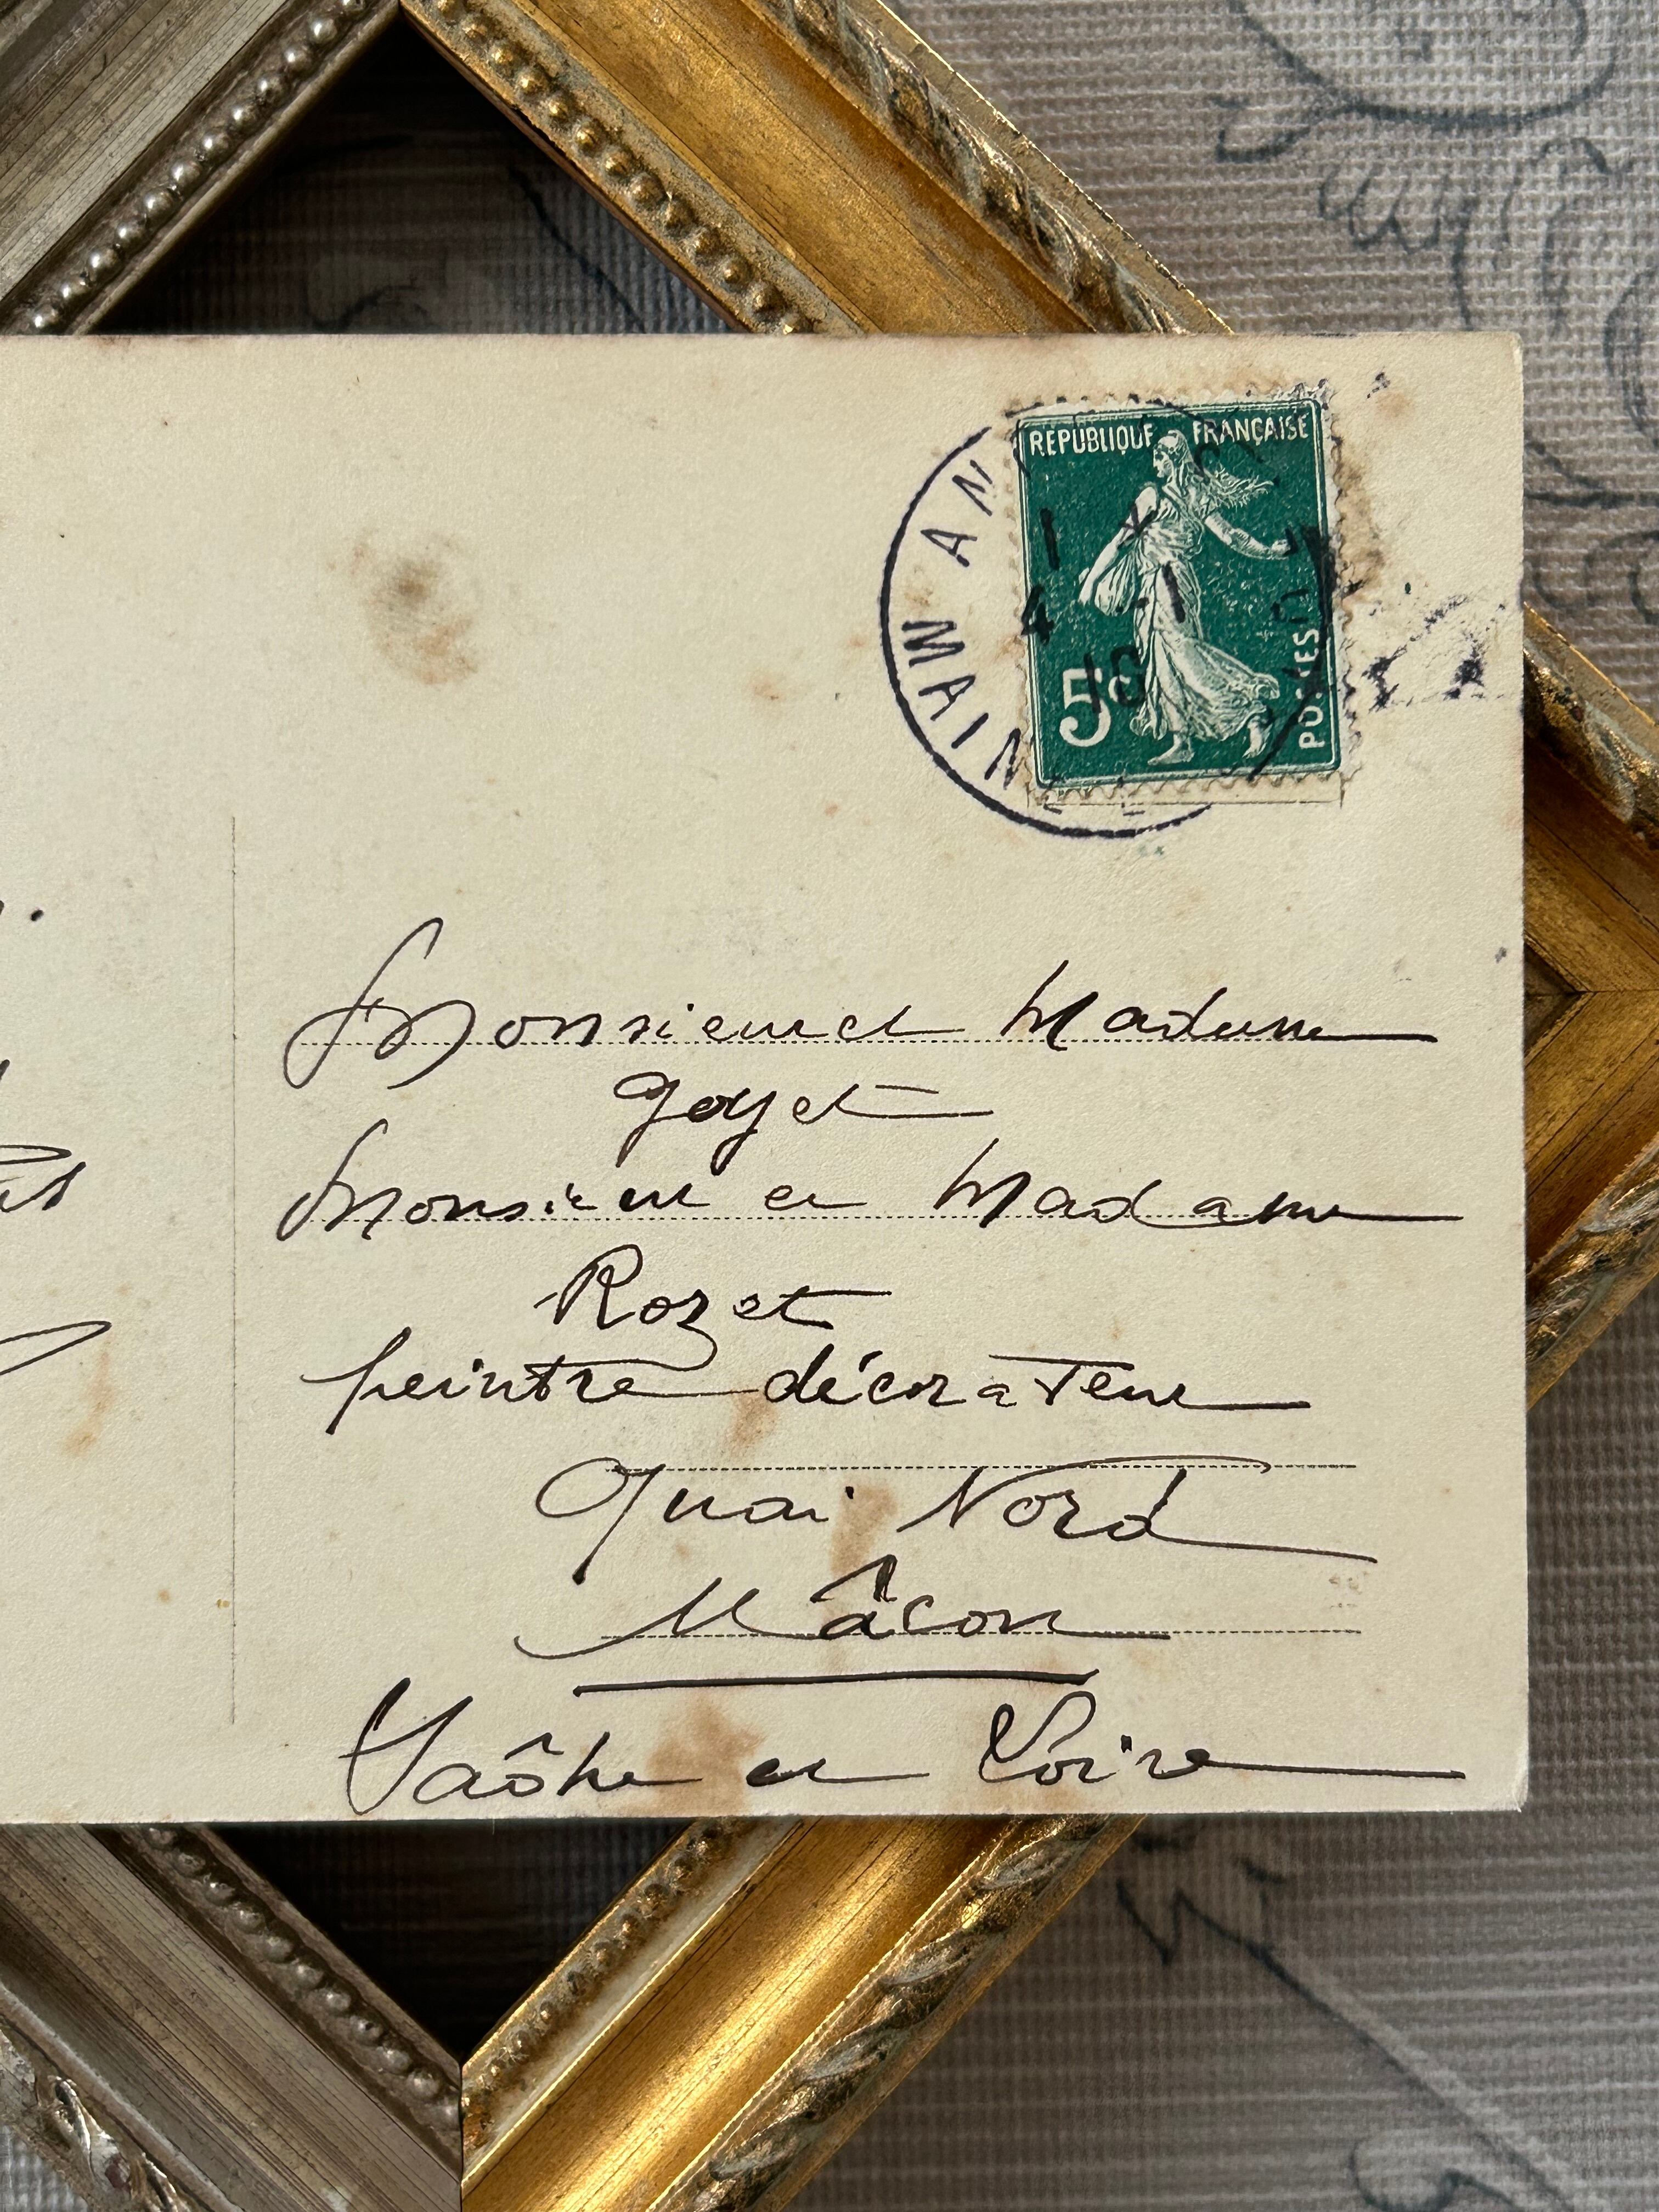 RÉPUBLIQUE FRANÇAISE
1 *
4 -1
5c
POSTES
AN
MAIN
Monsieur et Madame
Goyet
Monsieur et Madame
Rozet
peintre décorateur
Quai Nord
Mâcon
Saône et Loire